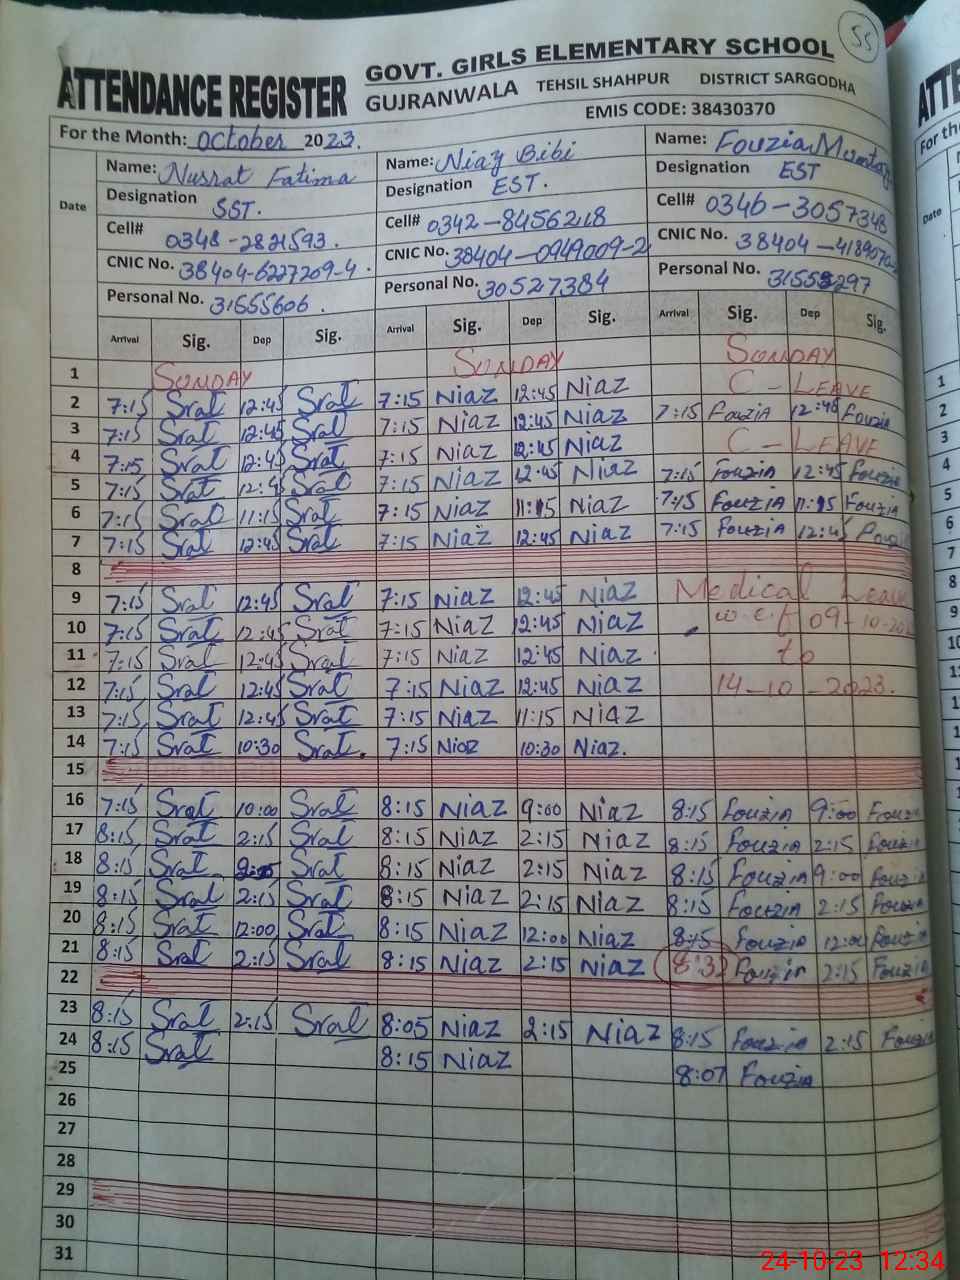 55
ATTENDANCE REGISTER
GOVT. GIRLS ELEMENTARY SCHOOL
GUJRANWALA TEHSIL SHAHPUR DISTRICT SARGODHA
EMIS CODE: 38430370
For the Month: October 2023.
Date Name: Nusrat Fatima Name: Niaz Bibi Name: Fouzia Mumtaz
Designation SST. Designation EST. Designation EST
Cell# 0348-2821593. Cell# 0342-8456218 Cell# 0346-3057348
CNIC No. 38404-6227209-4. CNIC No. 38404-0949009-2 CNIC No. 38404-4189070-
Personal No. 31555606. Personal No. 30527384 Personal No.
Arrival Sig. Dep Sig. Arrival Sig. Dep Sig. Arrival Sig. Dep Sig.
1 SUNDAY SUNDAY SUNDAY
2 7:15 Srat 12:45 Srat 7:15 Niaz 12:45 Niaz C-LEAVE
3 7:15 Srat 12:45 Srat 7:15 Niaz 12:45 Niaz 7:15 Fouzia 12:45 Fouzia
4 7:15 Srat 12:45 Srat 7:15 Niaz 12:45 Niaz C-LEAVE
5 7:15 Srat 12:45 Srat 7:15 Niaz 12:45 Niaz 7:15 Fouzia 12:45 Fouzia
6 7:15 Srat 11:15 Srat 7:15 Niaz 11:15 Niaz 7:15 Fouzia 11:15 Fouzia
7 7:15 Srat 12:45 Srat 7:15 Niaz 12:45 Niaz 7:15 Fouzia 12:45 Fouzia
8
9 7:15 Srat 12:45 Srat 7:15 Niaz 12:45 Niaz Medical Leave
10 7:15 Srat 12:45 Srat 7:15 Niaz 12:45 Niaz w.e.f 09-10-20
11 7:15 Srat 12:45 Srat 7:15 Niaz 12:45 Niaz to
12 7:15 Srat 12:45 Srat 7:15 Niaz 12:45 Niaz 14-10-2023.
13 7:15 Srat 12:45 Srat 7:15 Niaz 11:15 Niaz
14 7:15 Srat 10:30 Srat. 7:15 Niaz 10:30 Niaz.
15
16 7:15 Srat 10:00 Srat 8:15 Niaz 9:00 Niaz 8:15 Fouzia 9:00 Fouzia
17 8:15 Srat 2:15 Srat 8:15 Niaz 2:15 Niaz 8:15 Fouzia 2:15 Fouzia
18 8:15 Srat Srat 8:15 Niaz 2:15 Niaz 8:15 Fouzia 9:00 Fouzia
19 8:15 Srat 2:15 Srat 8:15 Niaz 2:15 Niaz 8:15 Fouzia 2:15 Fouzia
20 8:15 Srat 12:00 Srat 8:15 Niaz 12:00 Niaz 8:15 Fouzia 12:00 Fouzia
21 8:15 Srat 2:15 Srat 8:15 Niaz 2:15 Niaz 8:32 Fouzia 2:15 Fouzia
22
23 8:15 Srat 2:15 Srat 8:05 Niaz 2:15 Niaz 8:15 Fouzia 2:15 Fouzia
24 8:15 Srat 8:15 Niaz 8:07 Fouzia
25
26
27
28
29
30
31
ATTE
For the
Date
1
2
3
4
5
6
7
8
9
10
11
24-10-23 12:34